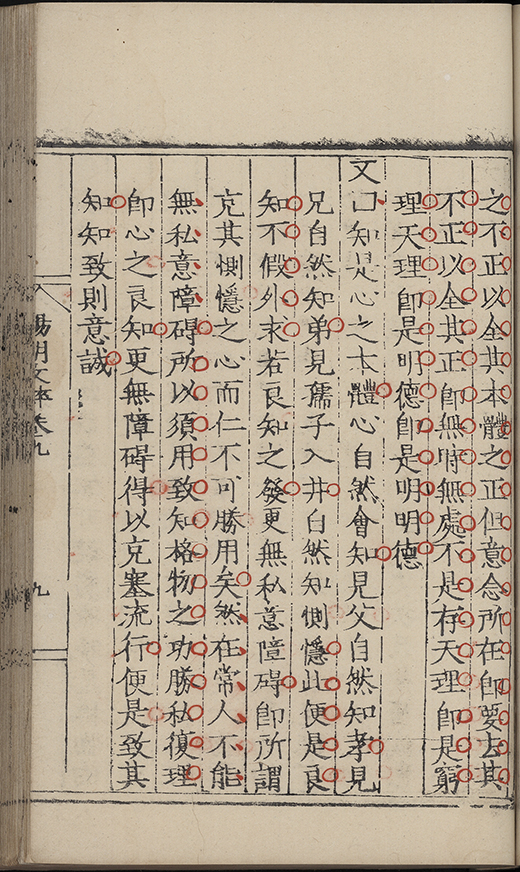 之不正以全其本體之正但意念所在即要去其
不正以全其正即無時無處不是存天理即是窮
理天理即是明德即是明明德
文曰知是心之本體心自然會知見父自然知孝見
兄自然知弟見孺子入井自然知惻隱此便是良
知不假外求若良知之發更無私意障碍即所謂
克其惻隱之心而仁不可勝用矣然在常人不能
無私意障碍所以須用致知格物之功勝私復理
即心之良知更無障碍得以克塞流行便是致其
知知致則意誠
陽明文粹卷九
九